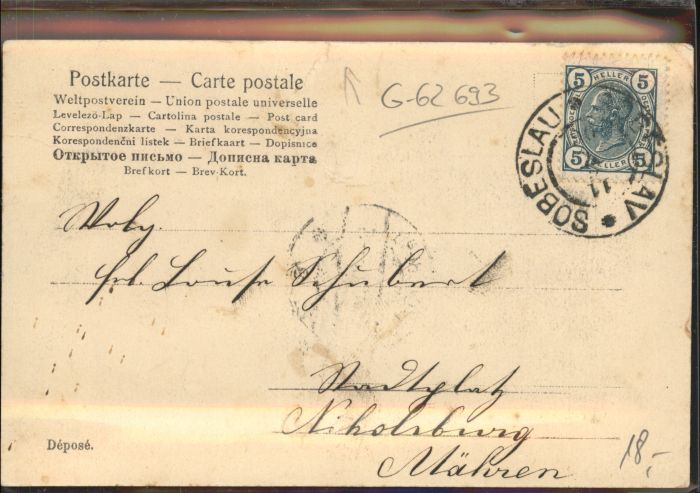 Postkarte — Carte postale
Weltpostverein — Union postale universelle
Levelező-Lap — Cartolina postale — Post card
Correspondenzkarte — Karta korespondencyjna
Korespondenční listek — Briefkaart — Dopisnice
Открытое письмо — Дописна карта
Brefkort — Brev-Kort.
G-62 693
5 HELLER 5
5 HELLER 5
SOBESLAU
SOBĚSLAV
11
Wolg.
frl. Louise Schubert
Stadtplatz
Nikolsburg
Mähren
Déposé.
18,-